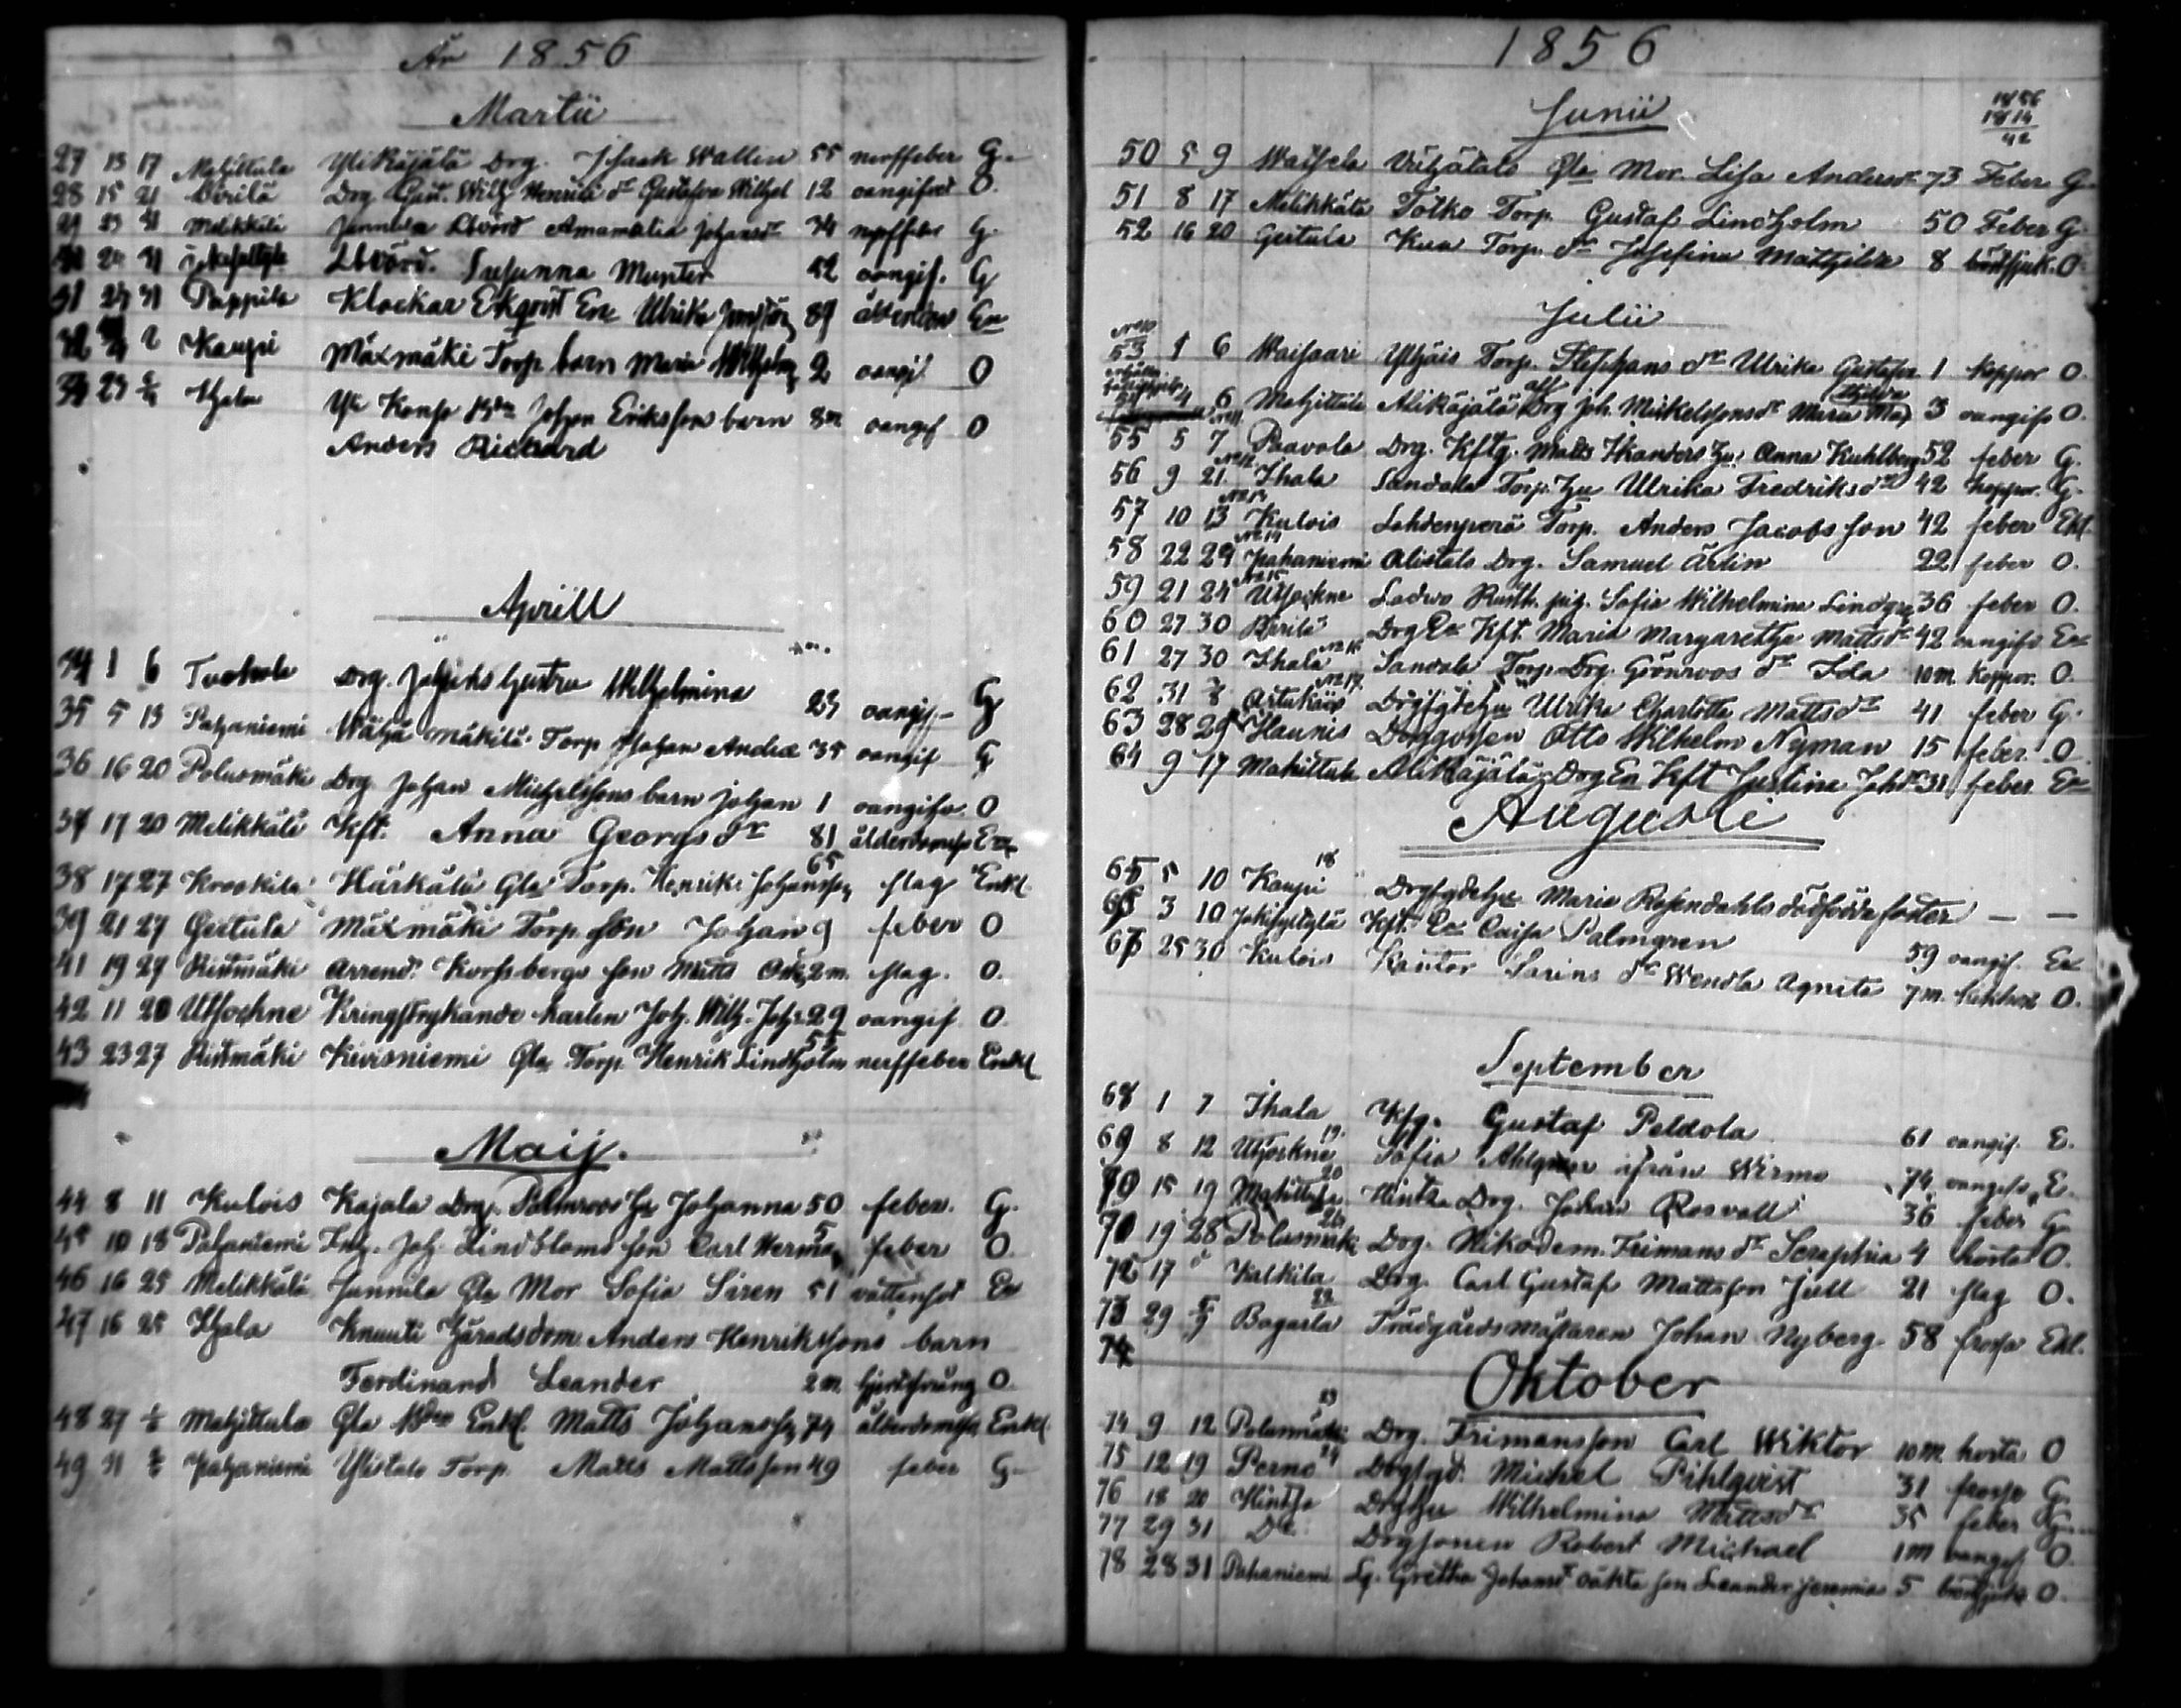 År 1856
Martii
27 13 17 Mahittula Ylikäjälä Drg. Isaak Wallen 55 nerffeber G.
28 15 21 Drg. Gust. Wilh. Henriks dr Gustafva Wilhel 12 oangifvet O.
29 23 Melikkälä Junnila Amamalia Johansdr 34 nerffeber G.
24 31 Susanna Munter 42 oangif. G
31 Pappila Klockar Ekqvist Ene Ulrika 89 ålderdom En
32 Kaupi Mäxmäki Torp. barn Maria Wilhelm 2 oangif O
29 Ihala Yli Konsa Johan Erikssons barn 8m oangif O
Anders Rickard
Aprill
34 1 6 Tuokola Drg. hustru Wilhelmina 23 oangif G
35 5 13 Pahaniemi Wähä Mäkilä Torp Johan Andræ 35 oangif G
36 16 20 Polusmäki Drg Johan Michelssons barn Johan 1 oangifv. O
37 17 20 Melikkälä Kft. Anna Georgs dr 81 ålderdoms En
38 17 27 Krookila Härkälä Gla Torp. Henrik Johansson 65 slag Enkl.
39 21 27 Gertula Mäxmäki Torp. son Johan 9 feber O
41 19 27 Ristmäki Arrend. Korssbergs son Matts 2m. slag. O.
42 11 20 Utsockne Kringstrykande karlen Joh. Wilh. Joh. 29 oangif O
43 23 27 Ristmäki Kivisniemi Gla Torp. Henrik Lindholm 55 nerffeber Enkl
Maij.
44 8 11 Kulois Kajala Drg. Palmroos hu Johanna 50 feber. G.
45 10 18 Pahaniemi Inh. Joh. Lindbloms son Carl Herman 5 feber O.
46 16 25 Melikkälä Junnila Gla Mor Sofia Siren 51 vattensot En
47 16 25 Ihala Knuuti häradsdom. Anders Henrikssons barn
Ferdinand Leander 2m. O.
48 27 Mahittula Gla Enkl. Matts Johansson 74 ålderdoms Enkl
49 31 Pahaniemi Ylistalo Torp. Matts Mattsson 49 feber G.
1856
Junii
1856
1814
42
50 5 9 Waisela Gla Mor. Lisa Andersdr 73 Feber G.
51 8 17 Melikkälä Tolko Torp. Gustaf Lindholm 50 Feber G.
52 16 20 Gertula Kua Torp. dr Josefina Mathilda 8 bröstsjuk. O
Julii
No 10
53 1 6 Waisaari Ylhäis Torp. Stephans dr Ulrika Gustafva 1 koppor O.
4 6 Mahittula Alikäjälä Drg Joh. Mickelssons dr Maria 3 oangifv O.
55 5 7 Paavola Drg. Kftg. Matts hu. Anna Kuhlberg 52 feber G.
56 9 21 Ihala Sandala Torp. hu Ulrika Fredriksdr 42 koppor. G.
57 10 13 Kulois Lahdenperä Torp. Anders Jacobsson 42 feber Ekl.
58 22 29 Pahaniemi Alistalo Drg. Samuel Ärlin 22 feber O.
59 21 24 Utsockne Ladvo Rusth. pig. Sofia Wilhelmina Lindgre 36 feber O.
60 27 30 Drg En Kft. Maria Margaretha Mattsdr 42 oangifv En
61 27 30 Ihala Sandala Torp. Drg. Grönroos dr Ida 10 m. koppor. O.
62 31 Artukais Drgfgdehu Ulrika Charlotta Mattsdr 41 feber G.
63 28 29 Haunis Drggossen Otto Wilhelm Nyman 15 feber. O.
64 9 17 Mahittula Alikäjälä Drg En Kft Justina Johdr 31 feber En
Augusti
65 5 10 Kaupi 18 Drgfgdehu Maria Rosendahls dödfödda foster — —
66 3 10 Kft. En Caisa Palmgren 59 oangif. En
67 25 30 Kulois Kantor Sarins dr Wendla Agneta 7 m. O.
September
68 1 7 Ihala Kfg. Gustaf Peldola 61 oangif. E.
69 8 12 Utsockne 19. Sofia Ahlgren ifrån Wirmo 74 oangifv E.
70 15 19 Mahittula 20 Hintsa Drg. Johan Rosvall 36 feber G.
71 19 28 Polusmäki Drg. Nikodem. Frimans dr Seraphia 4 hosta O.
72 17 Kalkila Drg. Carl Gustaf Mattsson Jull 21 slag O.
73 29 Bagarla 22 Trädgårdsmästaren Johan Nyberg 58 frossa Ekl.
74
Oktober
74 9 12 Polusmäki 23 Drg. Frimansson Carl Wiktor 10 m. hosta O
75 12 19 Perno 24 Drgfgd. Michel Pihlqvist 31 frossa G.
76 18 20 Hintsa Drghu Wilhelmina Mattsdr 35 feber G.
77 29 31 Do Drgsonen Robert Michael 1 m oangif O.
78 28 31 Pahaniemi Lg. Gretha Johansdr oäkta son Leander Jeremias 5 bröstsjuka O.